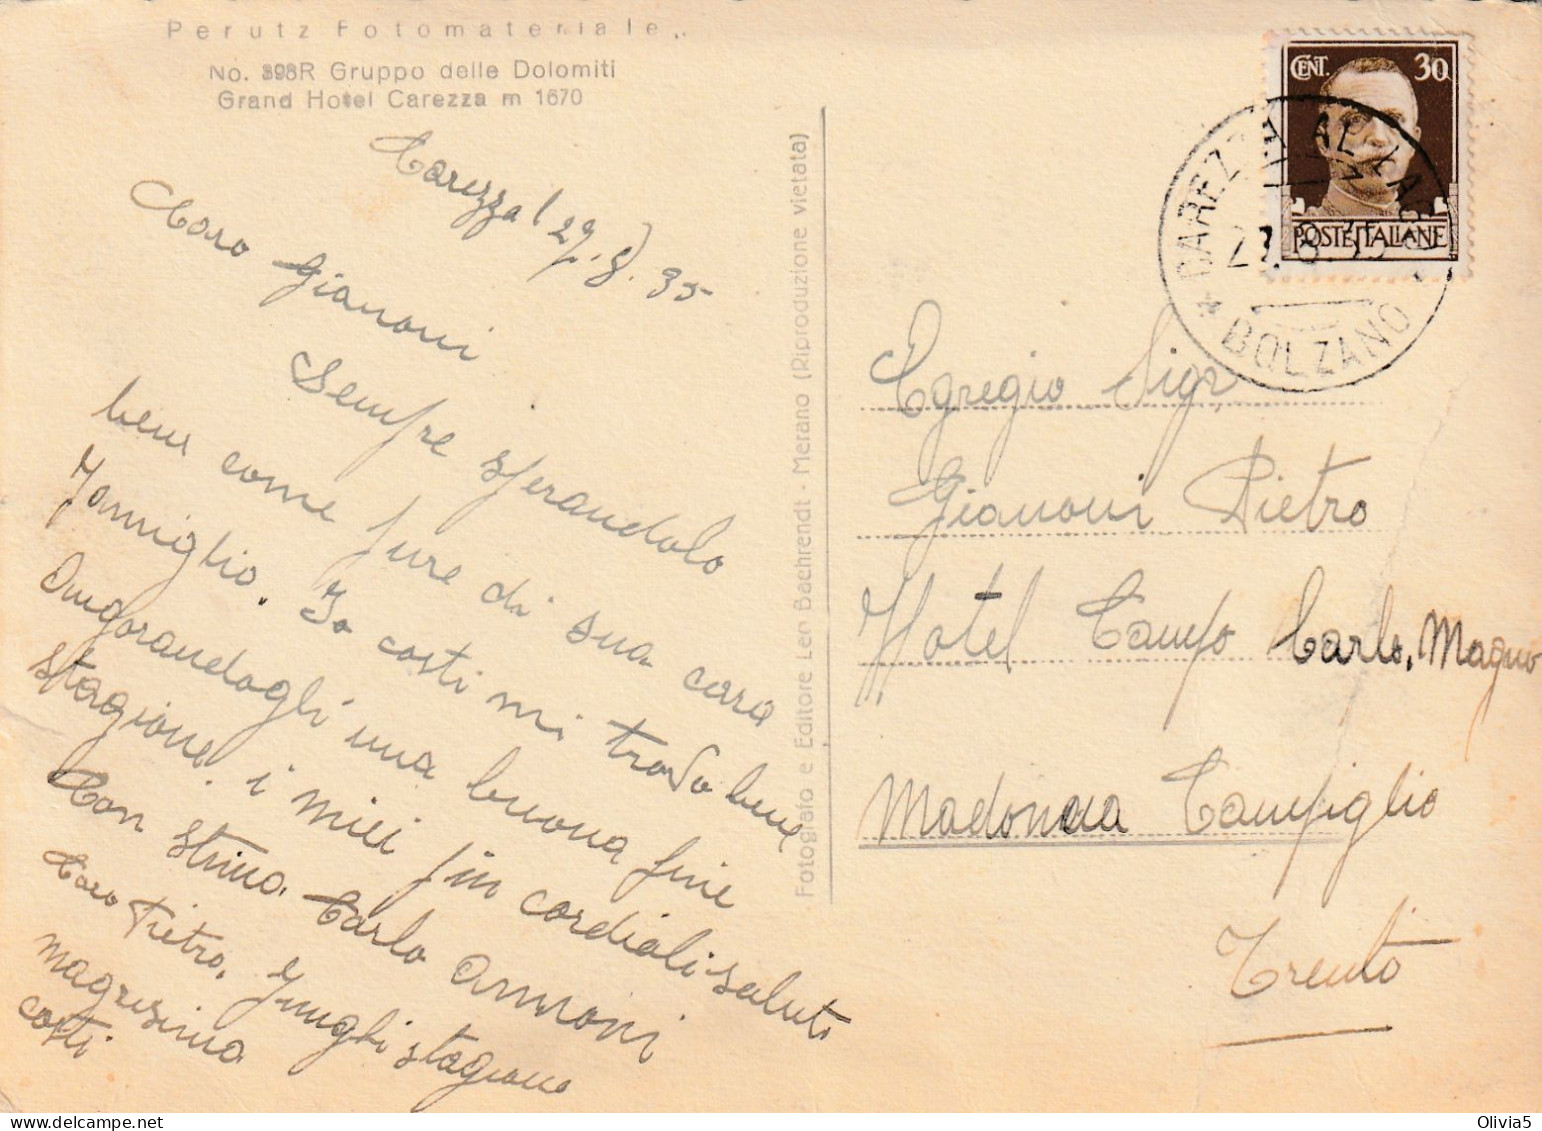 Perutz Fotomateriale
No. 398R Gruppo delle Dolomiti
Grand Hotel Carezza m 1670
Carezza l 29.8.35
Caro Gianoni
Sempre sperandolo
bene come pure di sua cara
Famiglio. Io costi mi trovo bene
Augorandogli una buona fine
stagione. i miei più cordiali saluti
Con stima. Carlo Annoni
Caro Pietro, funghi stagione
magrisima
costi
Fotografo e Editore Leo Baehrendt - Merano (Riproduzione vietata)
CENT. 30
POSTE ITALIANE
CAREZZA AL LAGO
BOLZANO
Egregio Sigr
Gianoni Pietro
Hotel Campo Carlo, Magno
Madonna Campiglio
Trento
Olivia5